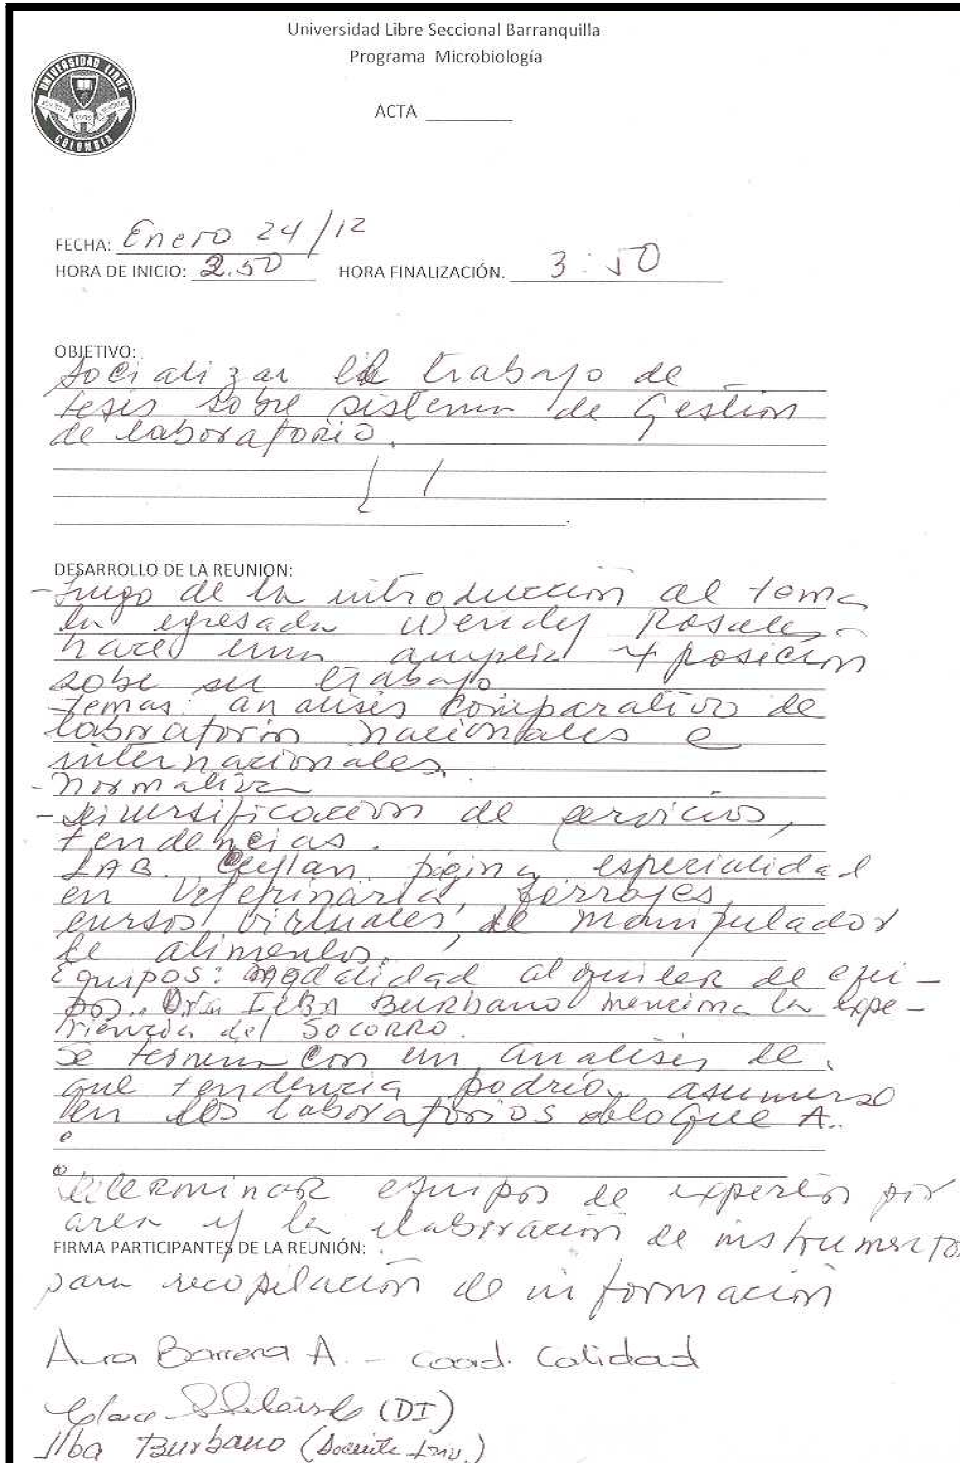 Universidad Libre Seccional Barranquilla
Programa Microbiología
UNIVERSIDAD LIBRE
COLOMBIA
ACTA ________
FECHA: Enero 24/12
HORA DE INICIO: 2.50 HORA FINALIZACIÓN. 3:50
OBJETIVO:
Socializar el trabajo de
tesis sobre sistema de Gestion
de laboratorio.
DESARROLLO DE LA REUNION:
- Luego de la introduccion al tema
la egresada Wendy Rosales
hace una amplia exposicion
sobe su trabajo
temas: analisis comparativo de
laboratorios nacionales e
internacionales.
- Normativa
- diversificacion de servicios,
tendencias.
LAB. pagina especialidad
en Veterinaria, forrajes,
cursos virtuales, de manipulador
de alimentos.
Equipos: modalidad alquiler de equi-
pos. Dra Burbano menciona la expe-
riencia del SOCORRO.
Se termina con un analisis de
que tendencia podria asumirse
en los laboratorios bloque A.
Determinar equipos de expertos por
area y la elaboracion de instrumentos
FIRMA PARTICIPANTES DE LA REUNIÓN:
para recopilacion de informacion
Barrera A. - Coord. Calidad
(DI)
Burbano (Docente)